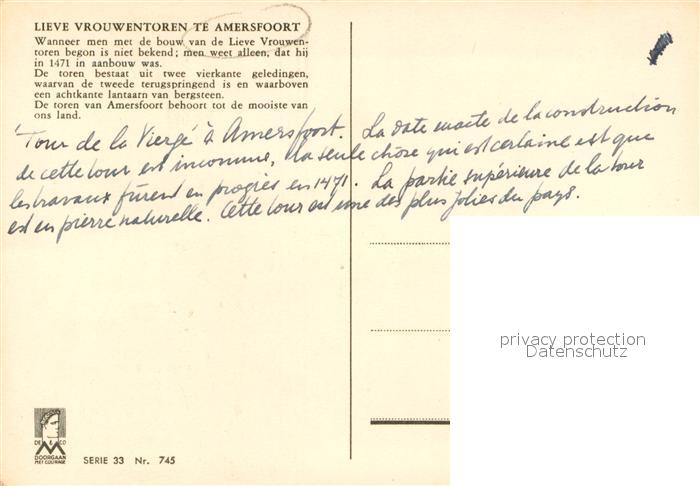 LIEVE VROUWENTOREN TE AMERSFOORT
Wanneer men met de bouw van de Lieve Vrouwen-
toren begon is niet bekend; men weet alleen, dat hij
in 1471 in aanbouw was.
De toren bestaat uit twee vierkante geledingen,
waarvan de tweede terugspringend is en waarboven
een achtkante lantaarn van bergsteen.
De toren van Amersfoort behoort tot de mooiste van
ons land.
"Tour de la Vierge" à Amersfoort. La date exacte de la construction
de cette tour est inconnue, la seule chose qui est certaine est que
les travaux furent en progrès en 1471. La partie supérieure de la tour
est en pierre naturelle. Cette tour est une des plus jolies du pays.
privacy protection
Datenschutz
DE & CO
DOORGAAN
MET COURAGE
SERIE 33 Nr. 745